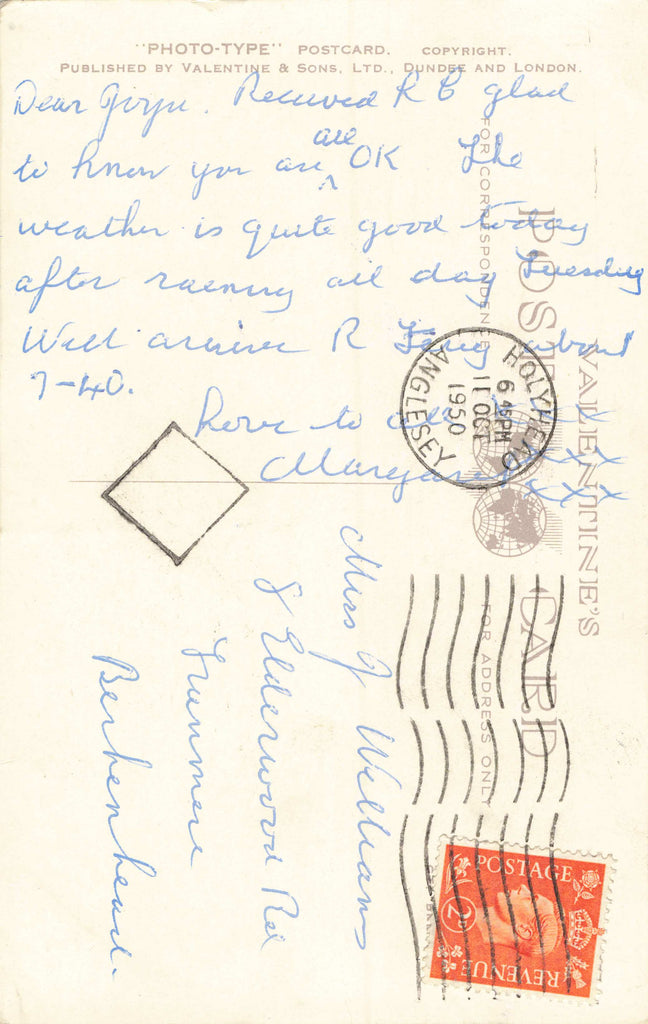 "PHOTO-TYPE" POSTCARD. COPYRIGHT.
PUBLISHED BY VALENTINE & SONS, LTD., DUNDEE AND LONDON.
Dear Received R B glad
all
to know you are OK The
weather is quite good today
after raining all day Tuesday
Will arrive R Ferry about
7-40.
Love to all xxx
Margaret xxx
xxx
VALENTINE'S
POST CARD
FOR CORRESPONDENCE
FOR ADDRESS ONLY
HOLYHEAD
6 45 PM
11 OCT
1950
ANGLESEY
Miss J Williams
8 Elderwood Rd
Tranmere
Berkenhead.
POSTAGE
2D
REVENUE